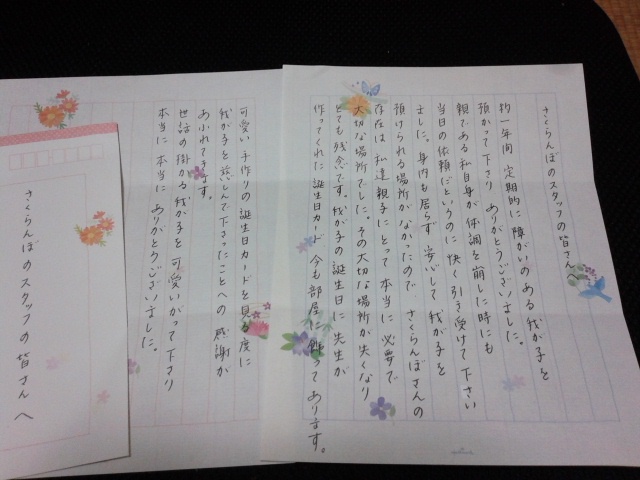 さくらんぼのスタッフの皆さんへ
約一年間 定期的に 障がいのある 我が子を
預かって下さり ありがとうございました。
親である私自身が 体調を崩した時にも
当日の依頼だというのに 快く引き受けて下さい
ました。身内も居らず 安心して 我が子を
預けられる場所がなかったので、さくらんぼさんの
存在は 私達親子にとって 本当に 必要で
大切な場所でした。その大切な場所が失くなり
とても残念です。我が子の誕生日に 先生が
作ってくれた 誕生日カード 今も部屋に飾ってあります。
可愛い 手作りの 誕生日カードを見る度に
我が子を慈しんで下さったことへの 感謝が
あふれてきます。
世話の掛かる我が子を 可愛いがって下さり
本当に 本当に ありがとうございました。
さくらんぼのスタッフの皆さんへ